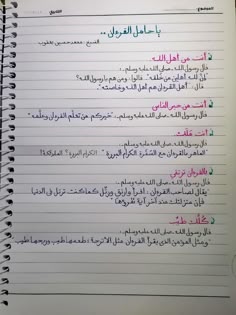 الموضوع: التاريخ:
يا حامل القرآن ..
الشيخ: محمد حسين يعقوب
أنت من أهل الله
قال رسول الله .صلى الله عليه وسلم..
"إنَّ لله أهلين من خلقه". قالوا: ومن هم يا رسول الله؟
قال: "أهل القرآن هم أهل الله وخاصته".
أنت من خير الناس
قال رسول الله .صلى الله عليه وسلم..: "خيركم من تعلّم القرآن وعلّمه"
أنت
"الماهر بالقرآن مع السفرة الكرام البررة" "الكرام البررة؟ الملائكة!"
بالقرآن ترتقي
قال رسول الله .صلى الله عليه وسلم..
"يقال لصاحب القرآن: اقرأ وارتق ورتّل كما كنت ترتل في الدنيا
فإن منزلتك عند آخر آية تقرؤها"
كلّك طيّب
قال رسول الله .صلى الله عليه وسلم..
"ومثل المؤمن الذي يقرأ القرآن مثل الأترجة: طعمها طيب وريحها طيب